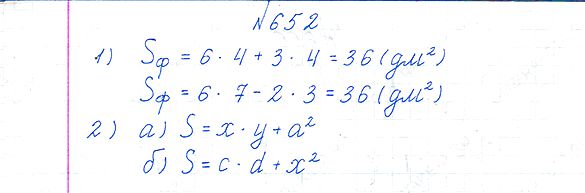 №652
1) Sф = 6 · 4 + 3 · 4 = 36 (дм²)
Sф = 6 · 7 - 2 · 3 = 36 (дм²)
2) а) S = x · y + a²
б) S = c · d + x²